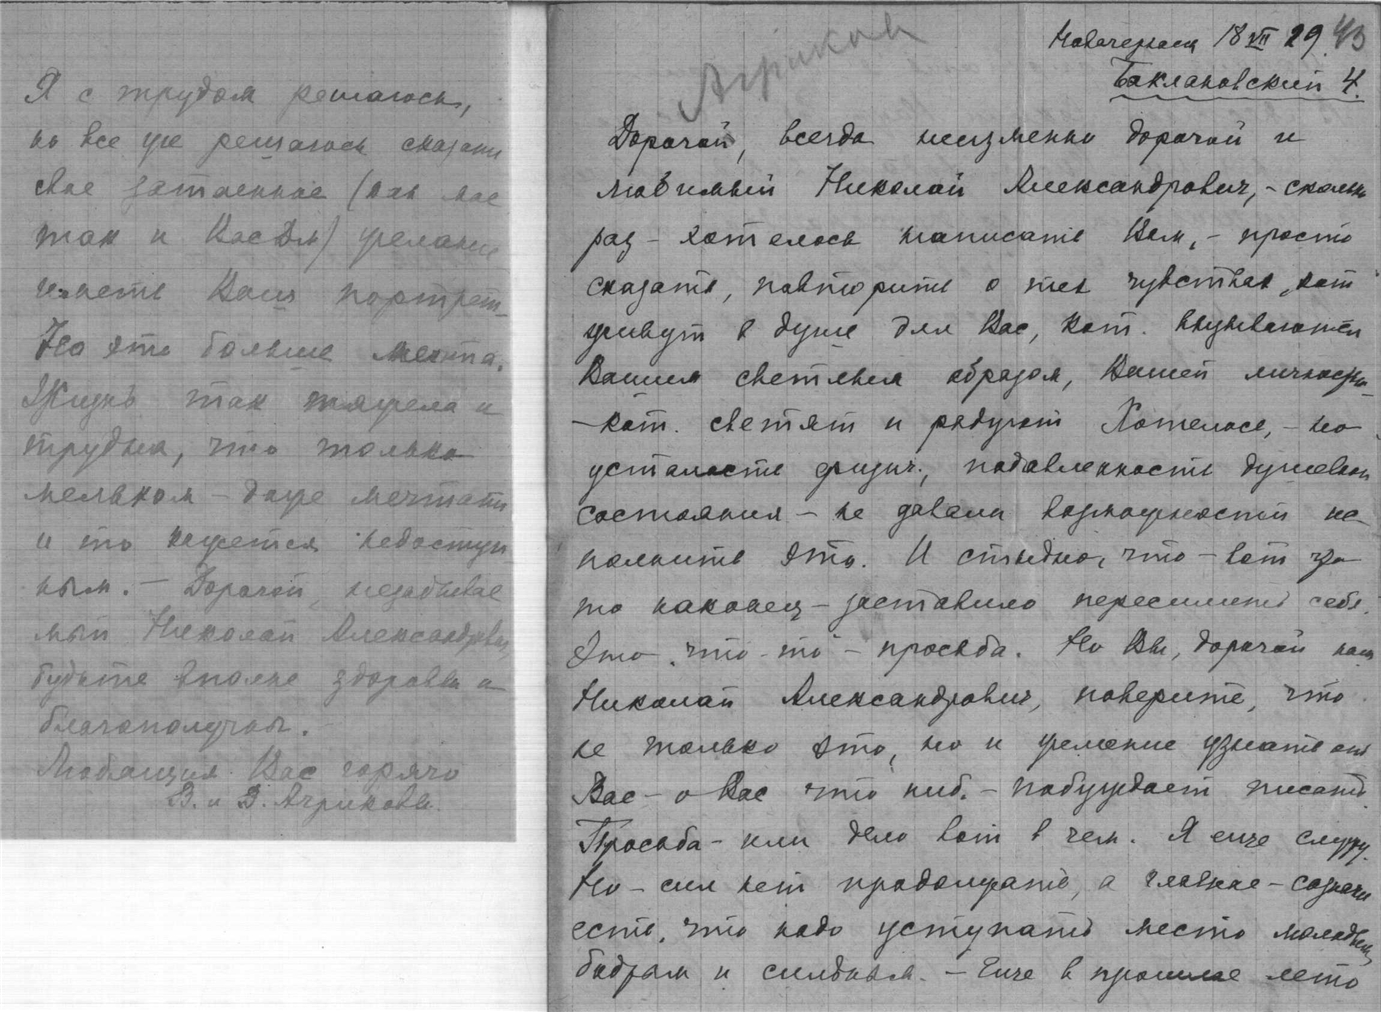 Я с трудом решаюсь,
но все же решаюсь сказать
свое затаенное (как мое
так и Вас. Дм) желание
иметь Ваш портрет.
Но это больше мечта.
Жизнь так тяжела и
трудна, что только
мельком – даже мечтать
и то кажется недоступ
ным. – Дорогой, незабывае
мый Николай Александрович,
будьте вполне здоровы и
благополучны. –
Любящия Вас горячо
В. и В. Агриковы.
Агриков
Новочеркасск 18 VII 29. 43
Баклановский 4.
Дорогой, всегда неизменно дорогой и
любимый Николай Александрович, – сколько
раз – хотелось написать Вам, – просто
сказать, повторить о тех чувствах, кот
живут в душе для Вас, кот. вызываются
Вашим светлым образом, Вашей личностью
– кот. светят и радуют Хотелось, – но
усталость физич., подавленность душевного
состояния – не давали возможности ис
полнить это. И стыдно, что – вот что
то наконец – заставило пересилить себя.
Это „что-то" – просьба. Но Вы, дорогой наш
Николай Александрович, поверите, что
не только это, но и желание узнать от
Вас – о Вас что ниб. – побуждает писать.
Просьба – или дело вот в чем. Я еще служу.
Но – сил нет продолжать, а главное – сознание
есть, что надо уступать место молодым,
бодрым и сильным. – Еще в прошлое лето